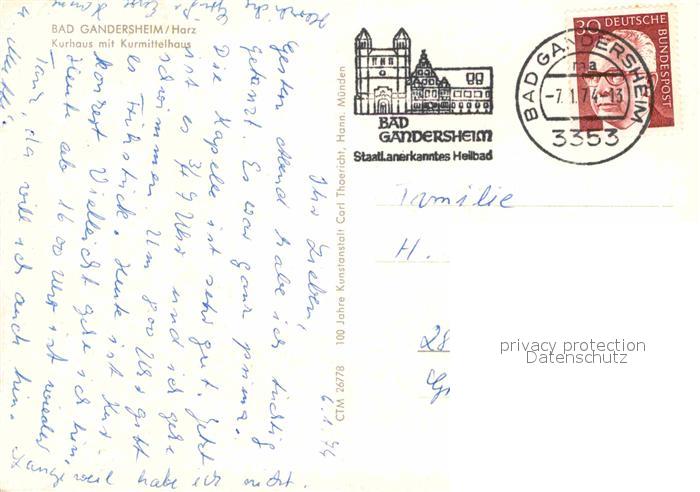 BAD GANDERSHEIM/Harz
Kurhaus mit Kurmittelhaus
6.1.74
Ihr Lieben!
Gestern Abend habe ich tüchtig
getanzt. Es war ganz prima.
Die Kapelle ist sehr gut. Jetzt
ist es 3/4 9 Uhr und ich gehe
schwimmen. Um 8.00 Uhr gibt
es Frühstück. Heute ist Kur-
konzert. Vielleicht gehe ich hin.
Heute ab 16.00 Uhr ist wieder
Tanz, da will ich auch hin.
weil habe ich nicht.
CTM 26778 100 Jahre Kunstanstalt Carl Thoericht, Hann. Münden
BAD
GANDERSHEIM
Staatl. anerkanntes Heilbad
BAD GANDERSHEIM
ma
-7.1.74-13
3353
30 DEUTSCHE
BUNDESPOST
Familie
H.
28
privacy protection
Datenschutz